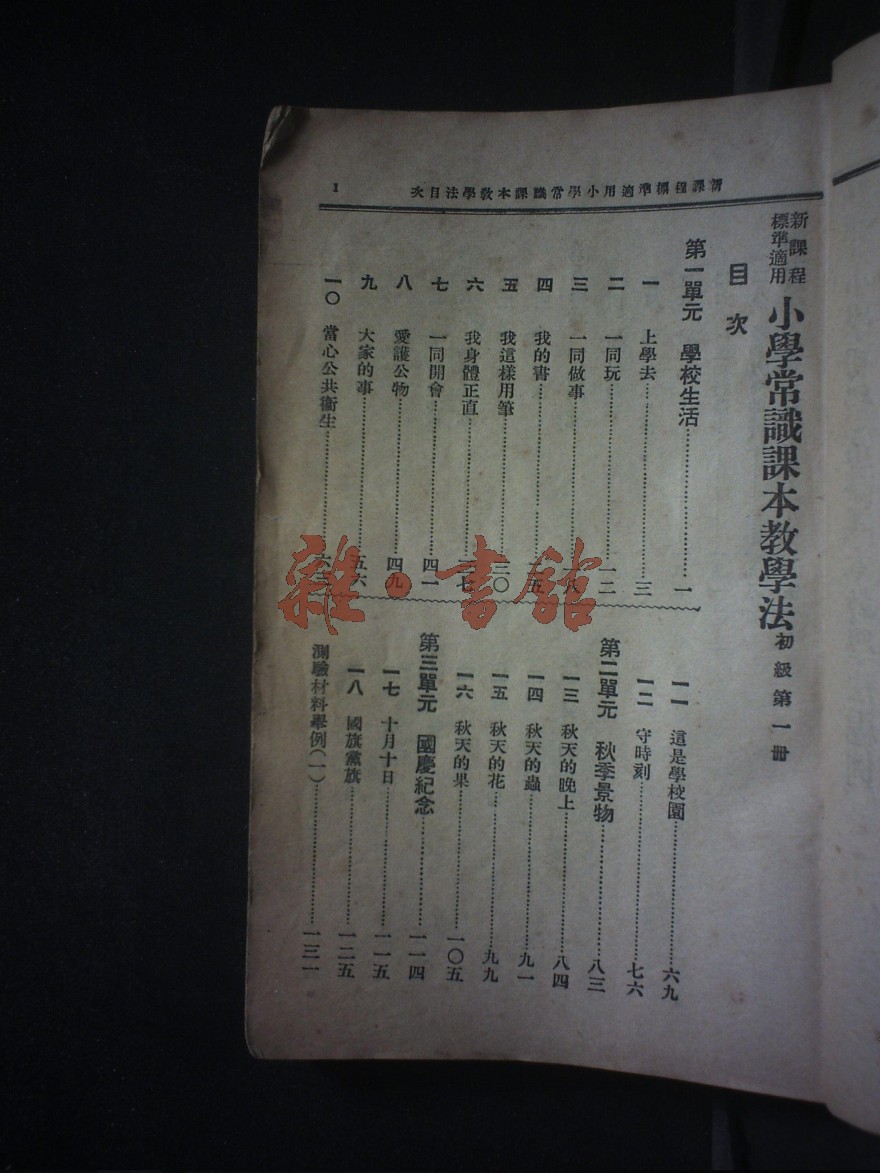 新課程標準適用小學常識課本教學法目次
1
新課程
標準適用
小學常識課本教學法 初級第一冊
目次
第一單元 學校生活……一
一 上學去……三
二 一同玩……一二
三 一同做事
四 我的書
五 我這樣用筆
六 我身體正直
七 一同開會……四一
八 愛護公物……四九
九 大家的事……五六
一〇 當心公共衞生
一一 這是學校園……六九
一二 守時刻……七六
第二單元 秋季景物……八三
一三 秋天的晚上……八四
一四 秋天的蟲……九一
一五 秋天的花……九九
一六 秋天的果……一〇五
第三單元 國慶紀念……一一四
一七 十月十日……一一五
一八 國旗黨旗……一二五
測驗材料舉例(一)……一三一
雜·書館